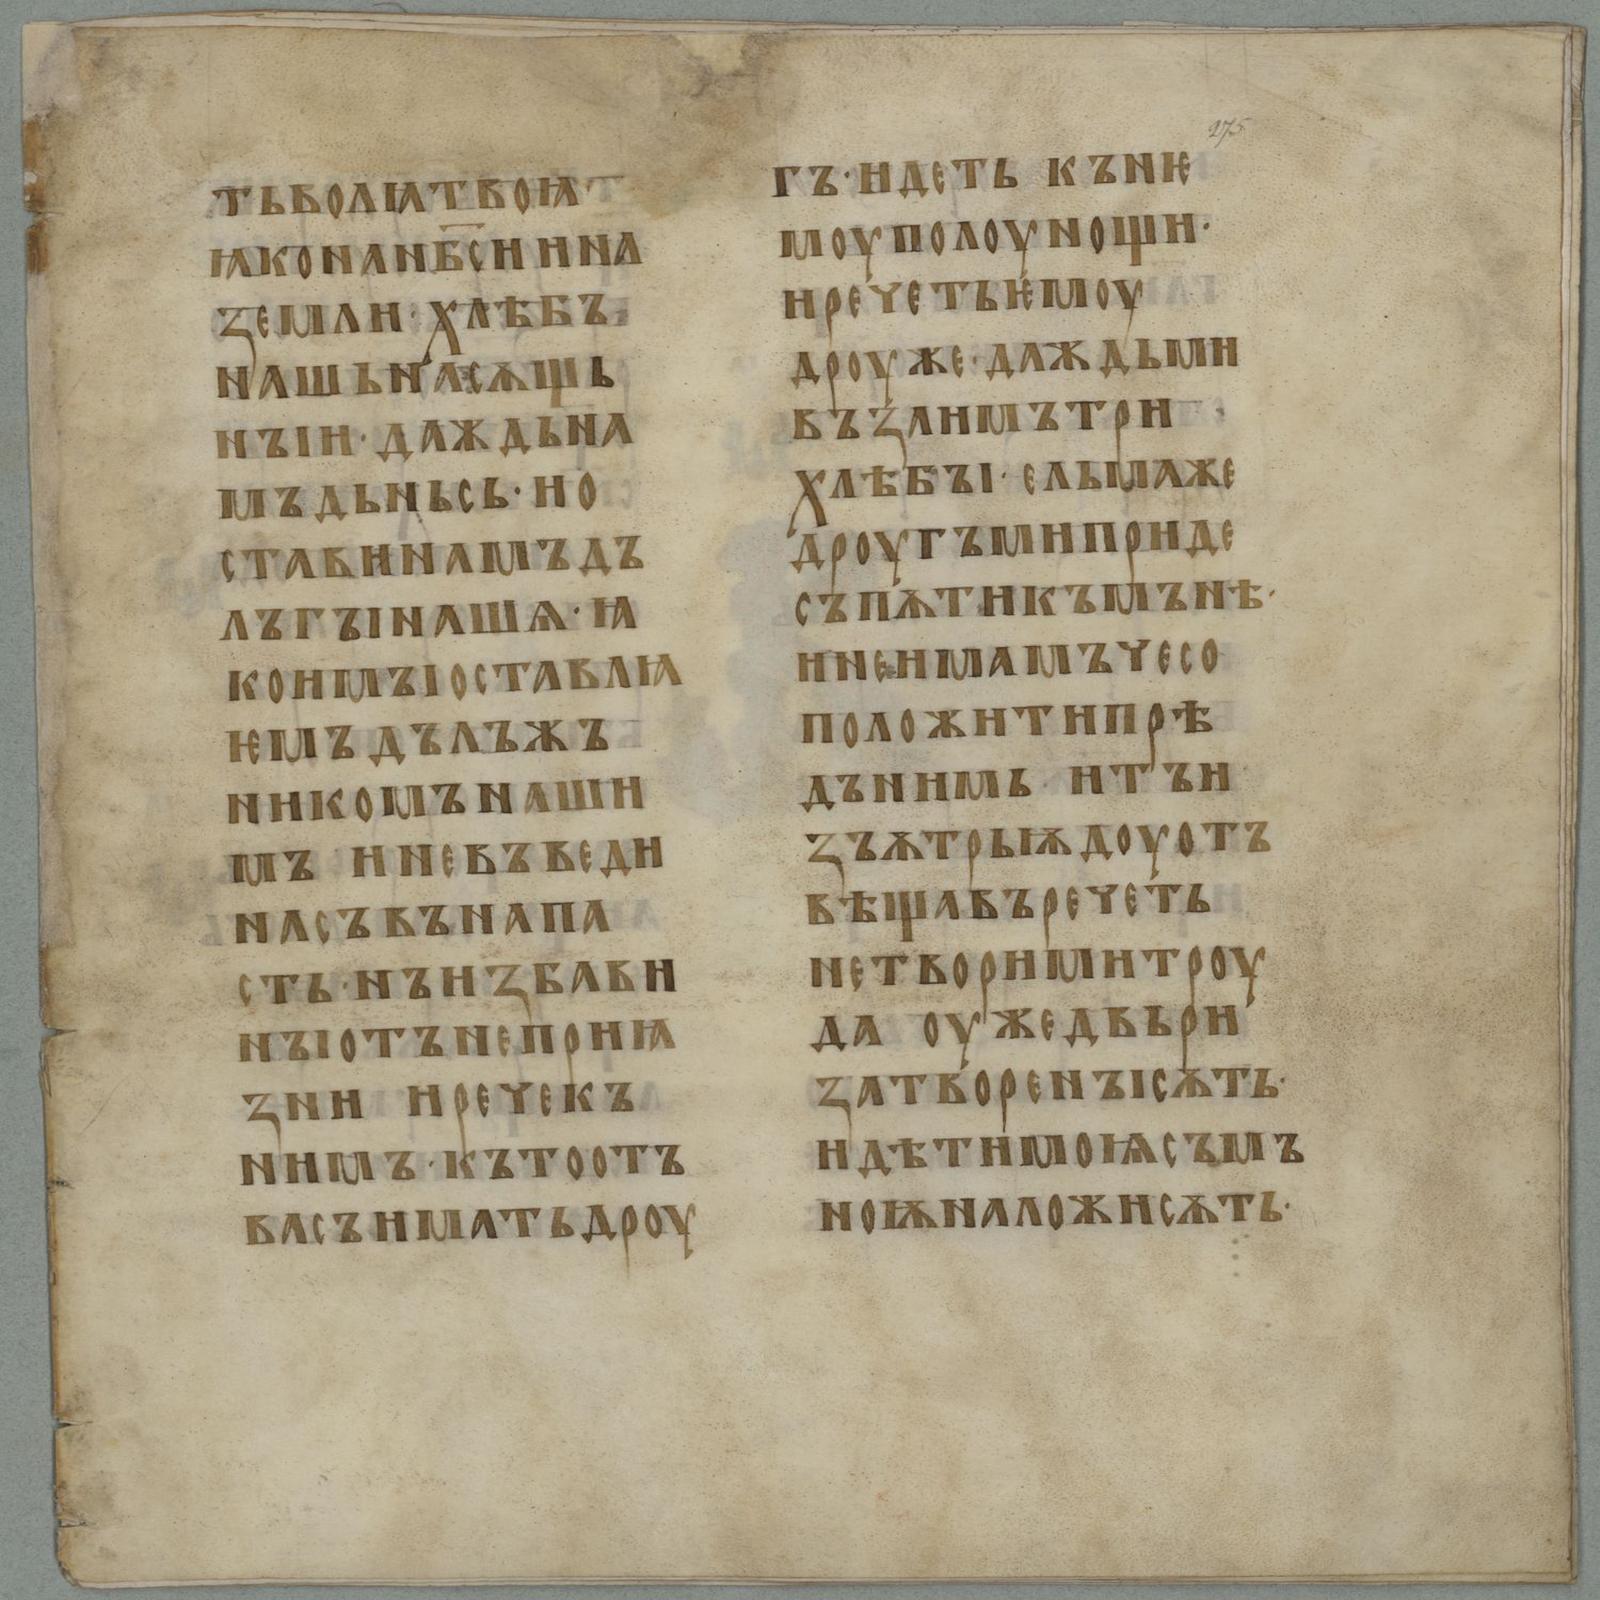 тьволꙗтвоꙗ·
ꙗконанб҃сннна
ꙁемлн·хлѣбъ
нашьнасѫщь
нъін·даждьна
мъдьньсь·но
ставннамъдъ
лъгъінашѧ·ꙗ
конмъіоставлꙗ
ѥмъдълъжъ
ннкомънашн
мъ нневъведн
насъвънапа
сть·нънꙁбавн
нъіотънепрнꙗ
ꙁнн нрече къ
ннмъ·къто отъ
васънматьдроу
гъ·ндеть кънѥ
моуполоунощн·
нречетьѥмоу
дроуже·даждьмн
въꙁанмътрн
хлѣбъі·ельмаже
дроугъмнпрнде
съпѫтнкъмънѣ·
нненмамъчесо
положнтнпрѣ
дъннмь·нтън
ꙁъѫтрьѭдоуотъ
вѣщавъречеть
нетворнмнтроу
да оужедвьрн
ꙁатворенъісѫть·
ндѣтнмоѩсъмъ
ноѭналожнсѫть·
275